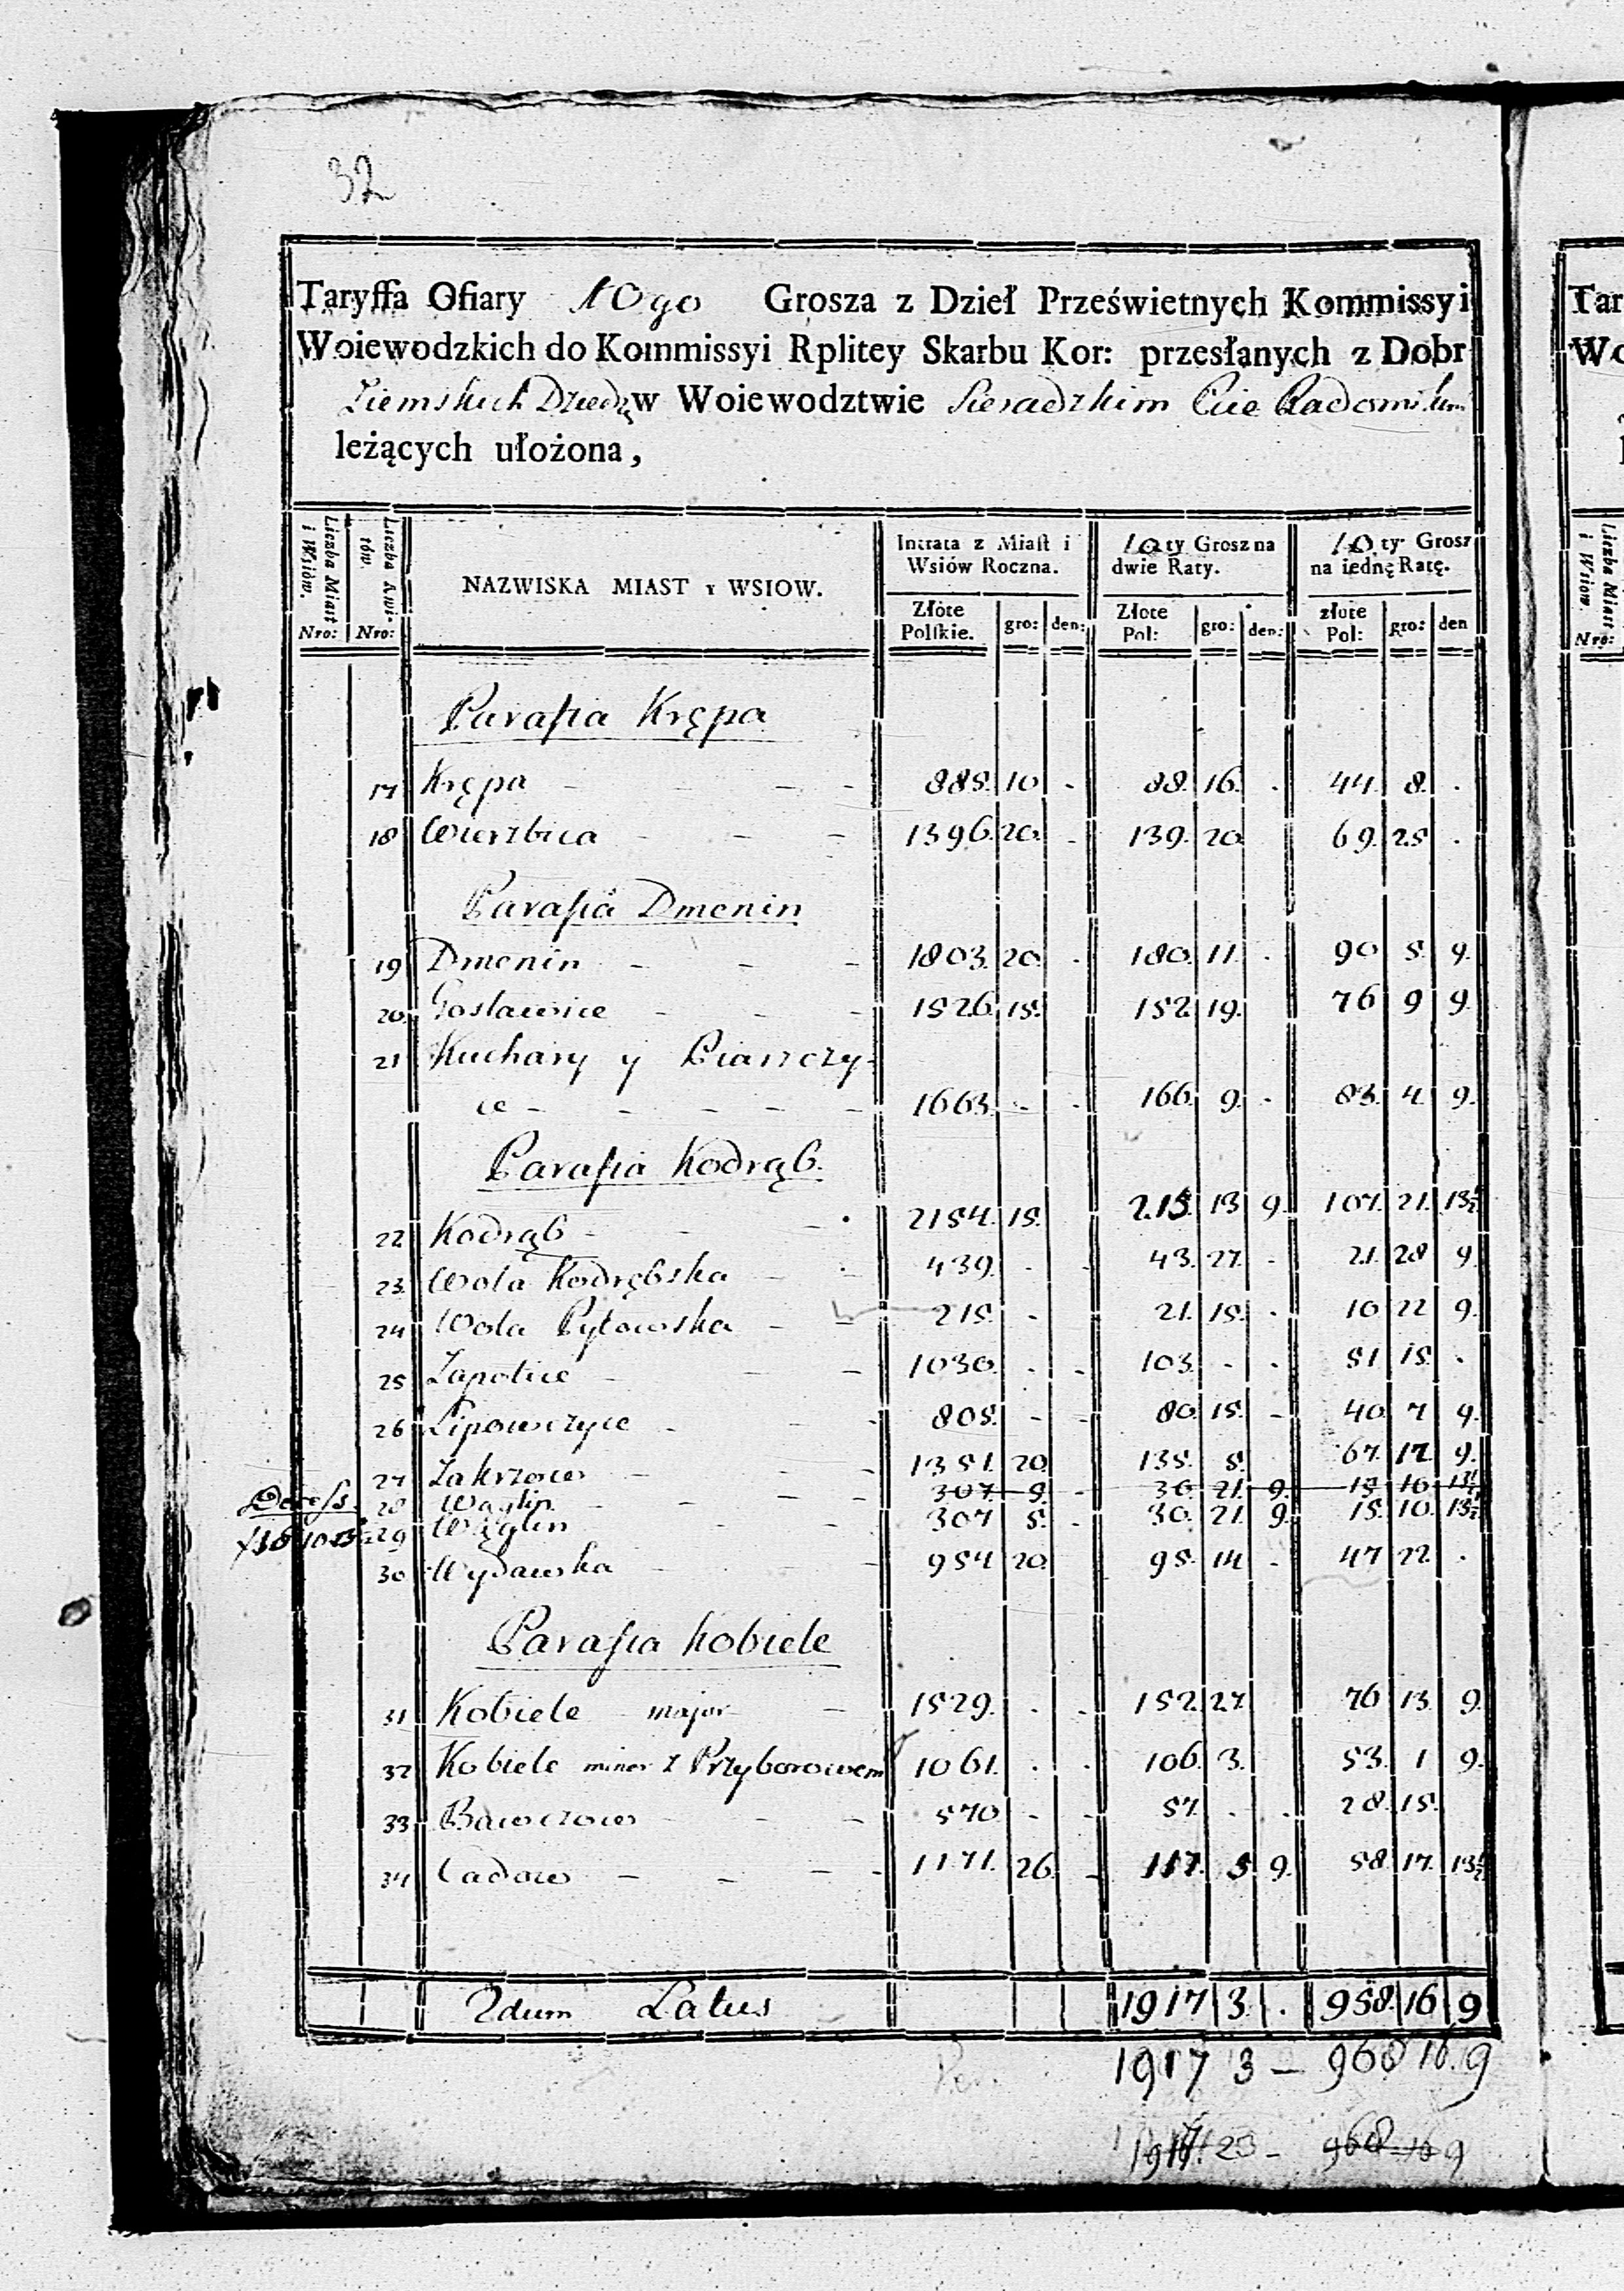 32
Taryffa Ofiary 10go Grosza z Dzieł Prześwietnych Kommissyi
Woiewodzkich do Kommissyi Rplitey Skarbu Kor: przesłanych z Dobr
Ziemskich Dziedz w Woiewodztwie Sieradzkim Pcie Radomskim
leżących ułożona,
Liczba Miast i Wsiów. Nro:
Nro:
NAZWISKA MIAST y WSIOW.
Intrata z Miast i Wsiów Roczna.
10ty Grosz na dwie Raty.
10.ty Grosz na iednę Ratę.
Złote Polskie. gro: den: Złote Pol: gro: den: złote Pol: gro: den
Parafia Krępa
17 Krępa - - - 885. 10 - 88. 16. . 44. 8. .
18 Wierzbica - - - 1396. 20. - 139. 20 69. 25 .
Parafia Dmenin
19 Dmenin - - - 1803. 20. . 180. 11. . 90 5. 9.
20. Gosławice - - - 1526. 15. 152. 19. 76 9 9.
21 Kuchary y Piaszczy-
ce - - - - - 1663. - . 166. 9. . 83. 4. 9.
Parafia Kodrąb.
22 Kodrąb - - - 2154. 15. 215. 13 9. 107. 21. 13½
23. Wola Kodrębska - - 439. . - 43. 27. . 21. 28 9.
24 Wola Pytowska - - 215. - 21. 15. . 10 22 9.
25 Zapolice - - 1030. . - 103. . . 51 15. .
26 Lipowczyce - - - 805. - - 80. 15. - 40. 7 9.
27 Zakrzew - - - 1351. 20. 135. 5. 67. 17. 9.
28 Wąglin - - - 307. 5. - 30. 21. 9. 15 10 13½
29 Wąglin - - 307 5. - 30. 21. 9. 15. 10. 13½
30 Wydawka - - 954 20. 95. 14 . 47 22 .
Parafia Kobiele
31 Kobiele major - 1529. . - 152. 27. 76 13. 9.
32 Kobiele minor z Przyborowem 1061. . . 106. 3. 53. 1 9.
33 Bawczow - - - 570 - - 57. . . 28. 15.
34 Cadow - - - - 1171. 26. - 117. 5 9. 58. 17. 13½
Latus 1917 3. . 958. 16 9
1917 3 - 968 16. 9
1917. 23 - 968 16 9